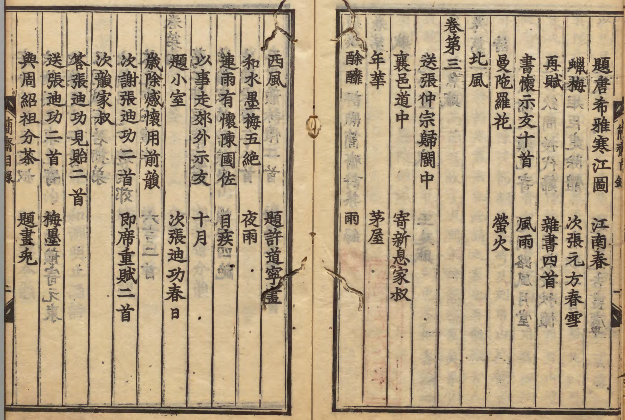 題唐希雅寒江圖 江南春
蠟梅 次張元方春雪
再賦 雜書四首
書懷示友十首 風雨
曼陁羅花 螢火
北風
卷第三
送張仲宗歸閩中
襄邑道中 寄新息家叔
年華 茅屋
酴醿 雨
西風 題許道寧畫
和水墨梅五絶 夜雨
連雨有懷陳國佐 目疾
以事走郊外示友 十月
題小室 次張迪功春日
歲除感懷用前韻
次謝張迪功二首 即席重賦二首
次韻家叔
荅張迪功見貽二首
送張迪功二首 梅墨
與周紹祖分茶 題畫兎
簡齋目錄
二